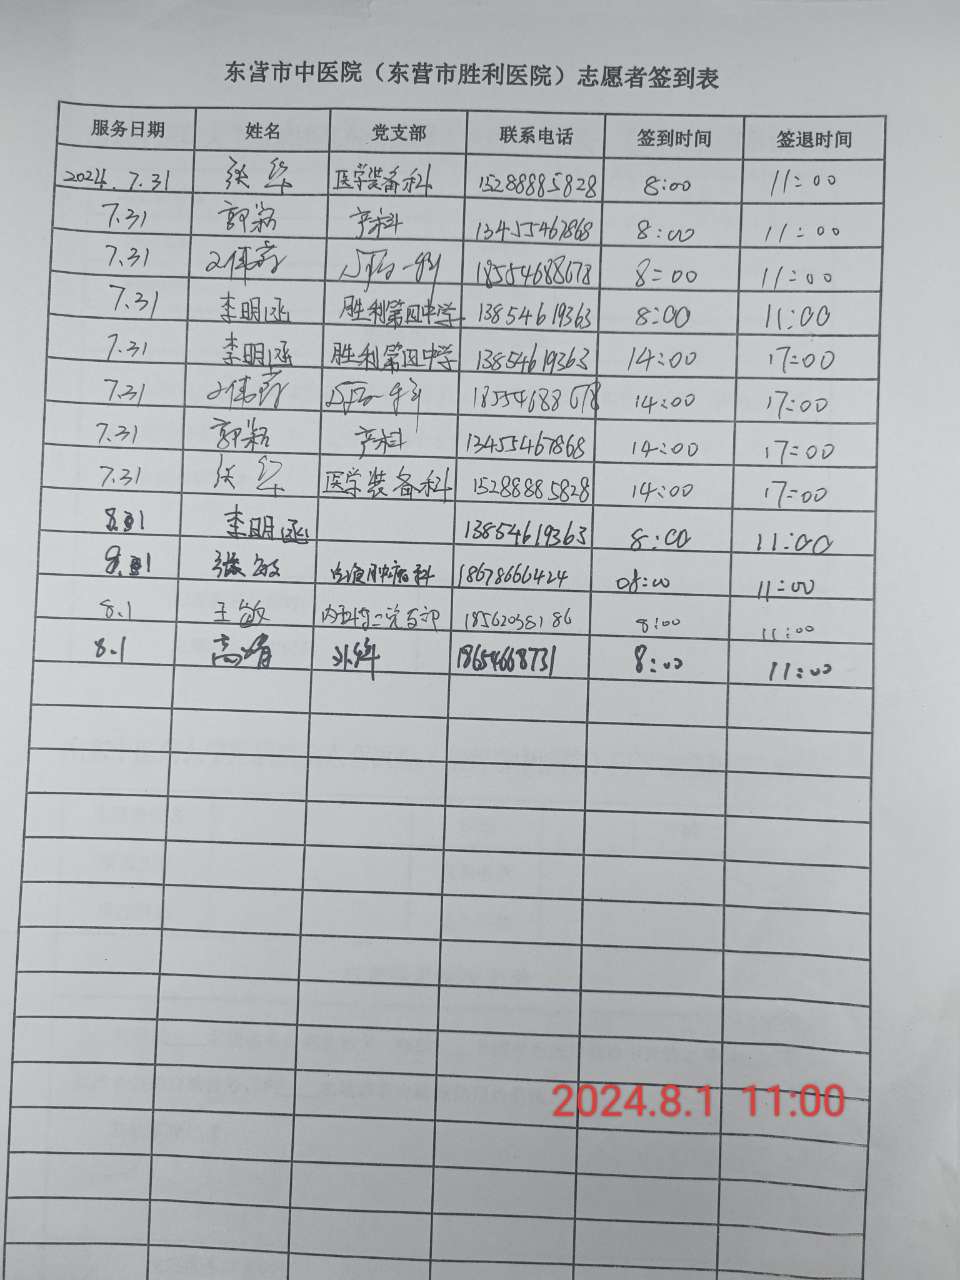 东营市中医院（东营市胜利医院）志愿者签到表
服务日期 姓名 党支部 联系电话 签到时间 签退时间
2024.7.31 张 医学装备科 15288885828 8:00 11:00
7.31 郭 产科 13455467868 8:00 11:00
7.31 18554688678 8:00 11:00
7.31 李明涵 胜利第四中学 13854619363 8:00 11:00
7.31 李明涵 胜利第四中学 13854619363 14:00 17:00
7.31 18554688678 14:00 17:00
7.31 郭 产科 13455467868 14:00 17:00
7.31 张 医学装备科 15288885828 14:00 17:00
8.1 李明涵 13854619363 8:00 11:00
8.1 张敏 肿瘤科 18678666424 08:00 11:00
8.1 王敏 8:00 11:00
8.1 高 18654668731 8:00 11:00
2024.8.1 11:00